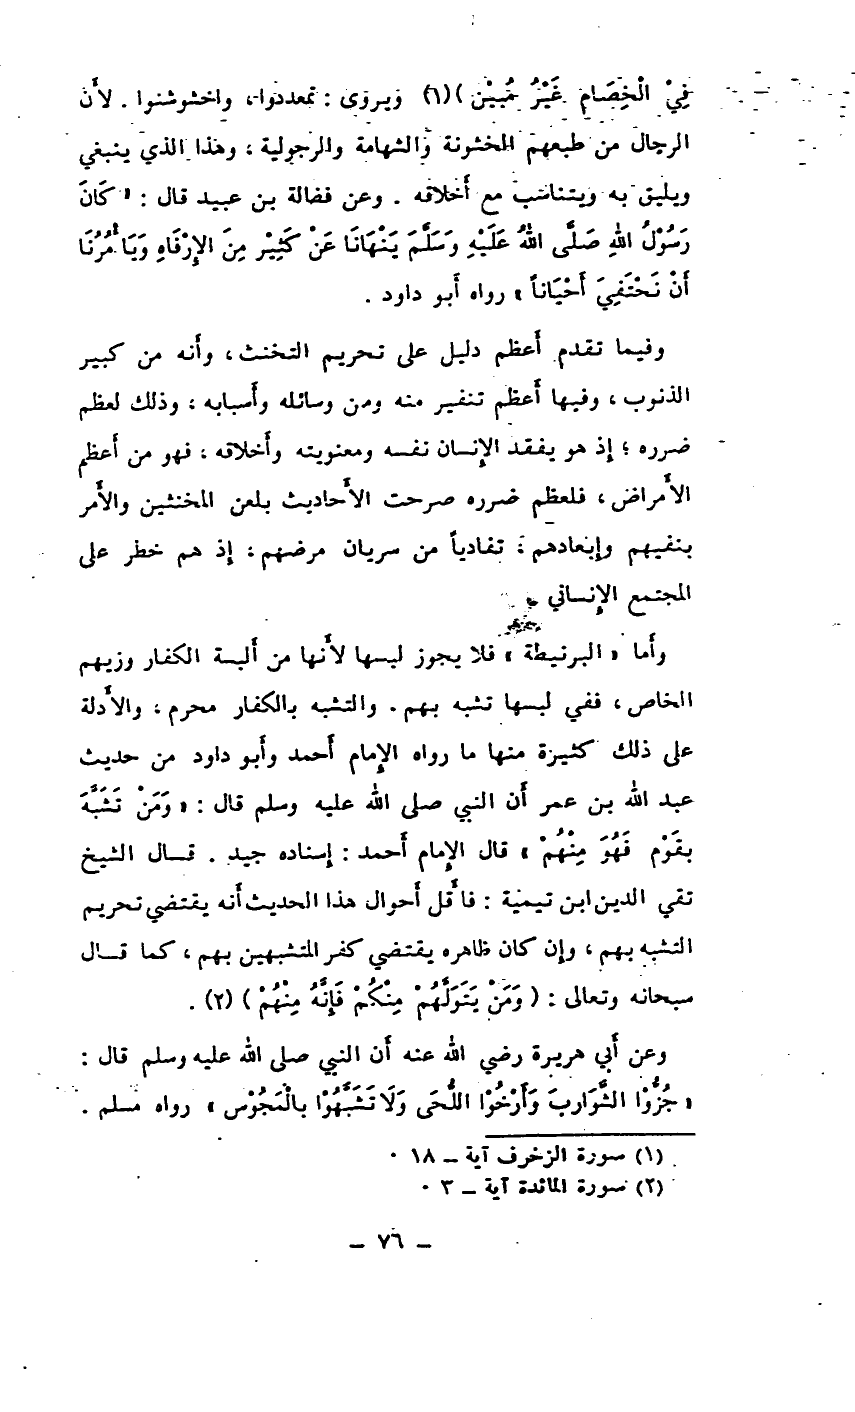 فِيْ الْخِصَامِ غَيْرُ مُبِيْنٍ )(١) ويروى : تمعددوا ، واخشوشنوا . لأَن
الرجال من طبعهم المخشونة والشهامة والرجولية ، وهذا الذي ينبغي
ويليق به ويتناسب مع أَخلاقه . وعن فضالة بن عبيد قال : « كَانَ
رَسُوْلُ اللهِ صَلَّى اللهُ عَلَيْهِ وَسَلَّمَ يَنْهَانَا عَنْ كَثِيْرٍ مِنَ الإِرْفَاهِ وَيَأْمُرُنَا
أَنْ نَحْتَفِيَ أَحْيَاناً » رواه أَبو داود .
وفيما تقدم أَعظم دليل على تحريم التخنث ، وأَنه من كبير
الذنوب ، وفيها أَعظم تنفير منه ومن وسائله وأَسبابه ، وذلك لعظم
ضرره ؛ إذ هو يفقد الإِنسان نفسه ومعنويته وأَخلاقه ، فهو من أَعظم
الأَمراض ، فلعظم ضرره صرحت الأَحاديث بلعن المخنثين والأَمر
بنفيهم وإِبعادهم ، تفادياً من سريان مرضهم ، إِذ هم خطر على
المجتمع الإِنساني .
وأَما « البرنيطة » فلا يجوز لبسها لأَنها من أَلبسة الكفار وزيهم
الخاص ، ففي لبسها تشبه بهم . والتشبه بالكفار محرم ، والأَدلة
على ذلك كثيرة منها ما رواه الإِمام أَحمد وأَبو داود من حديث
عبد الله بن عمر أَن النبي صلى الله عليه وسلم قال : « وَمَنْ تَشَبَّهَ
بِقَوْمٍ فَهُوَ مِنْهُمْ » قال الإِمام أَحمد : إِسناده جيد . قـال الشيخ
تقي الدين ابن تيمية : فأَقل أَحوال هذا الحديث أَنه يقتضي تحريم
التشبه بهم ، وإِن كان ظاهره يقتضي كفر المتشبهين بهم ، كما قـال
سبحانه وتعالى : ( وَمَنْ يَتَوَلَّهُمْ مِنْكُمْ فَإِنَّهُ مِنْهُمْ ) (٢) .
وعن أَبي هريرة رضي الله عنه أَن النبي صلى الله عليه وسلم قال :
« جُزُّوْا الشَّوَارِبَ وَأَرْخُوْا اللُّحَى وَلَا تَشَبَّهُوْا بِالْمَجُوْسِ » رواه مسلم .
(١) سورة الزخرف آية ـ ١٨ ٠
(٢) سورة المائدة آية ـ ٣ ٠
ـ ٧٦ ـ